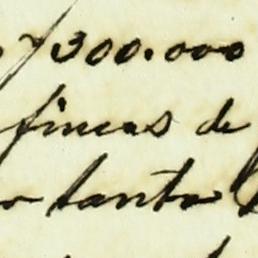 y 300.000
fincas de
tanto